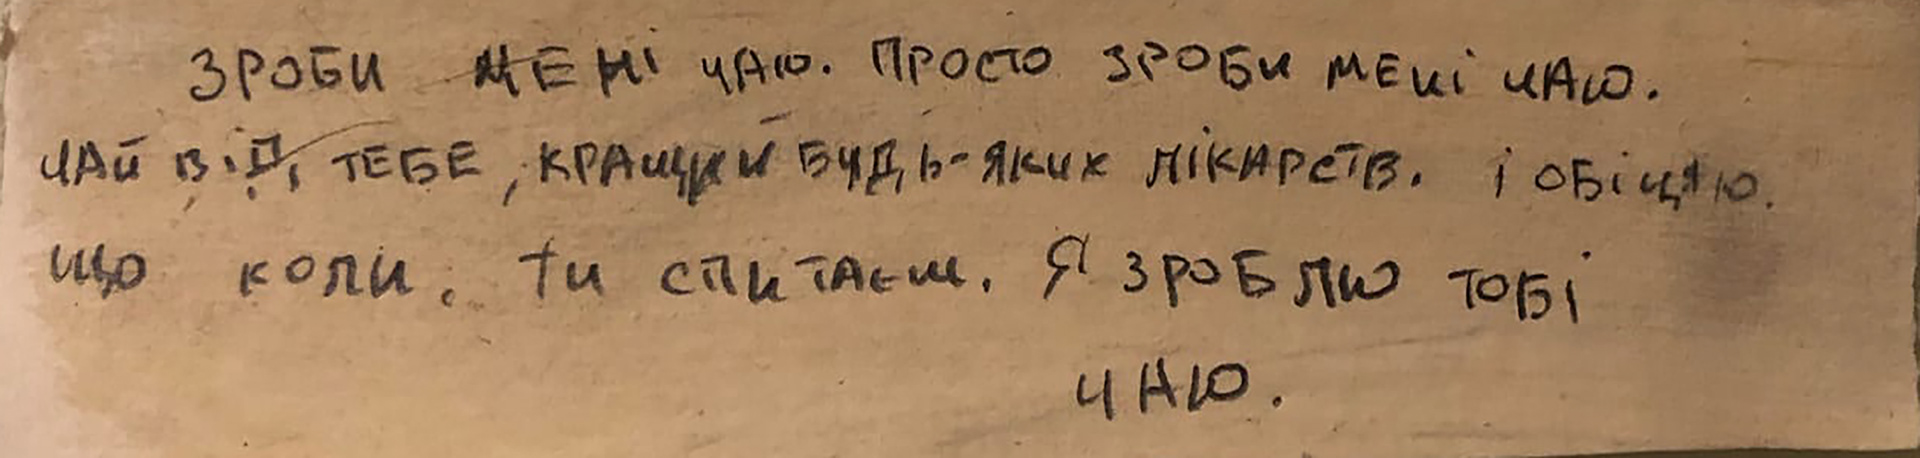 ЗРОБИ МЕНІ ЧАЮ. ПРОСТО ЗРОБИ МЕНІ ЧАЮ.
ЧАЙ ВІД ТЕБЕ, КРАЩИЙ БУДЬ-ЯКИХ ЛІКАРСТВ. І ОБІЦЯЮ.
ЩО КОЛИ. ТИ СПИТАЄШ. Я ЗРОБЛЮ ТОБІ
ЧАЮ.